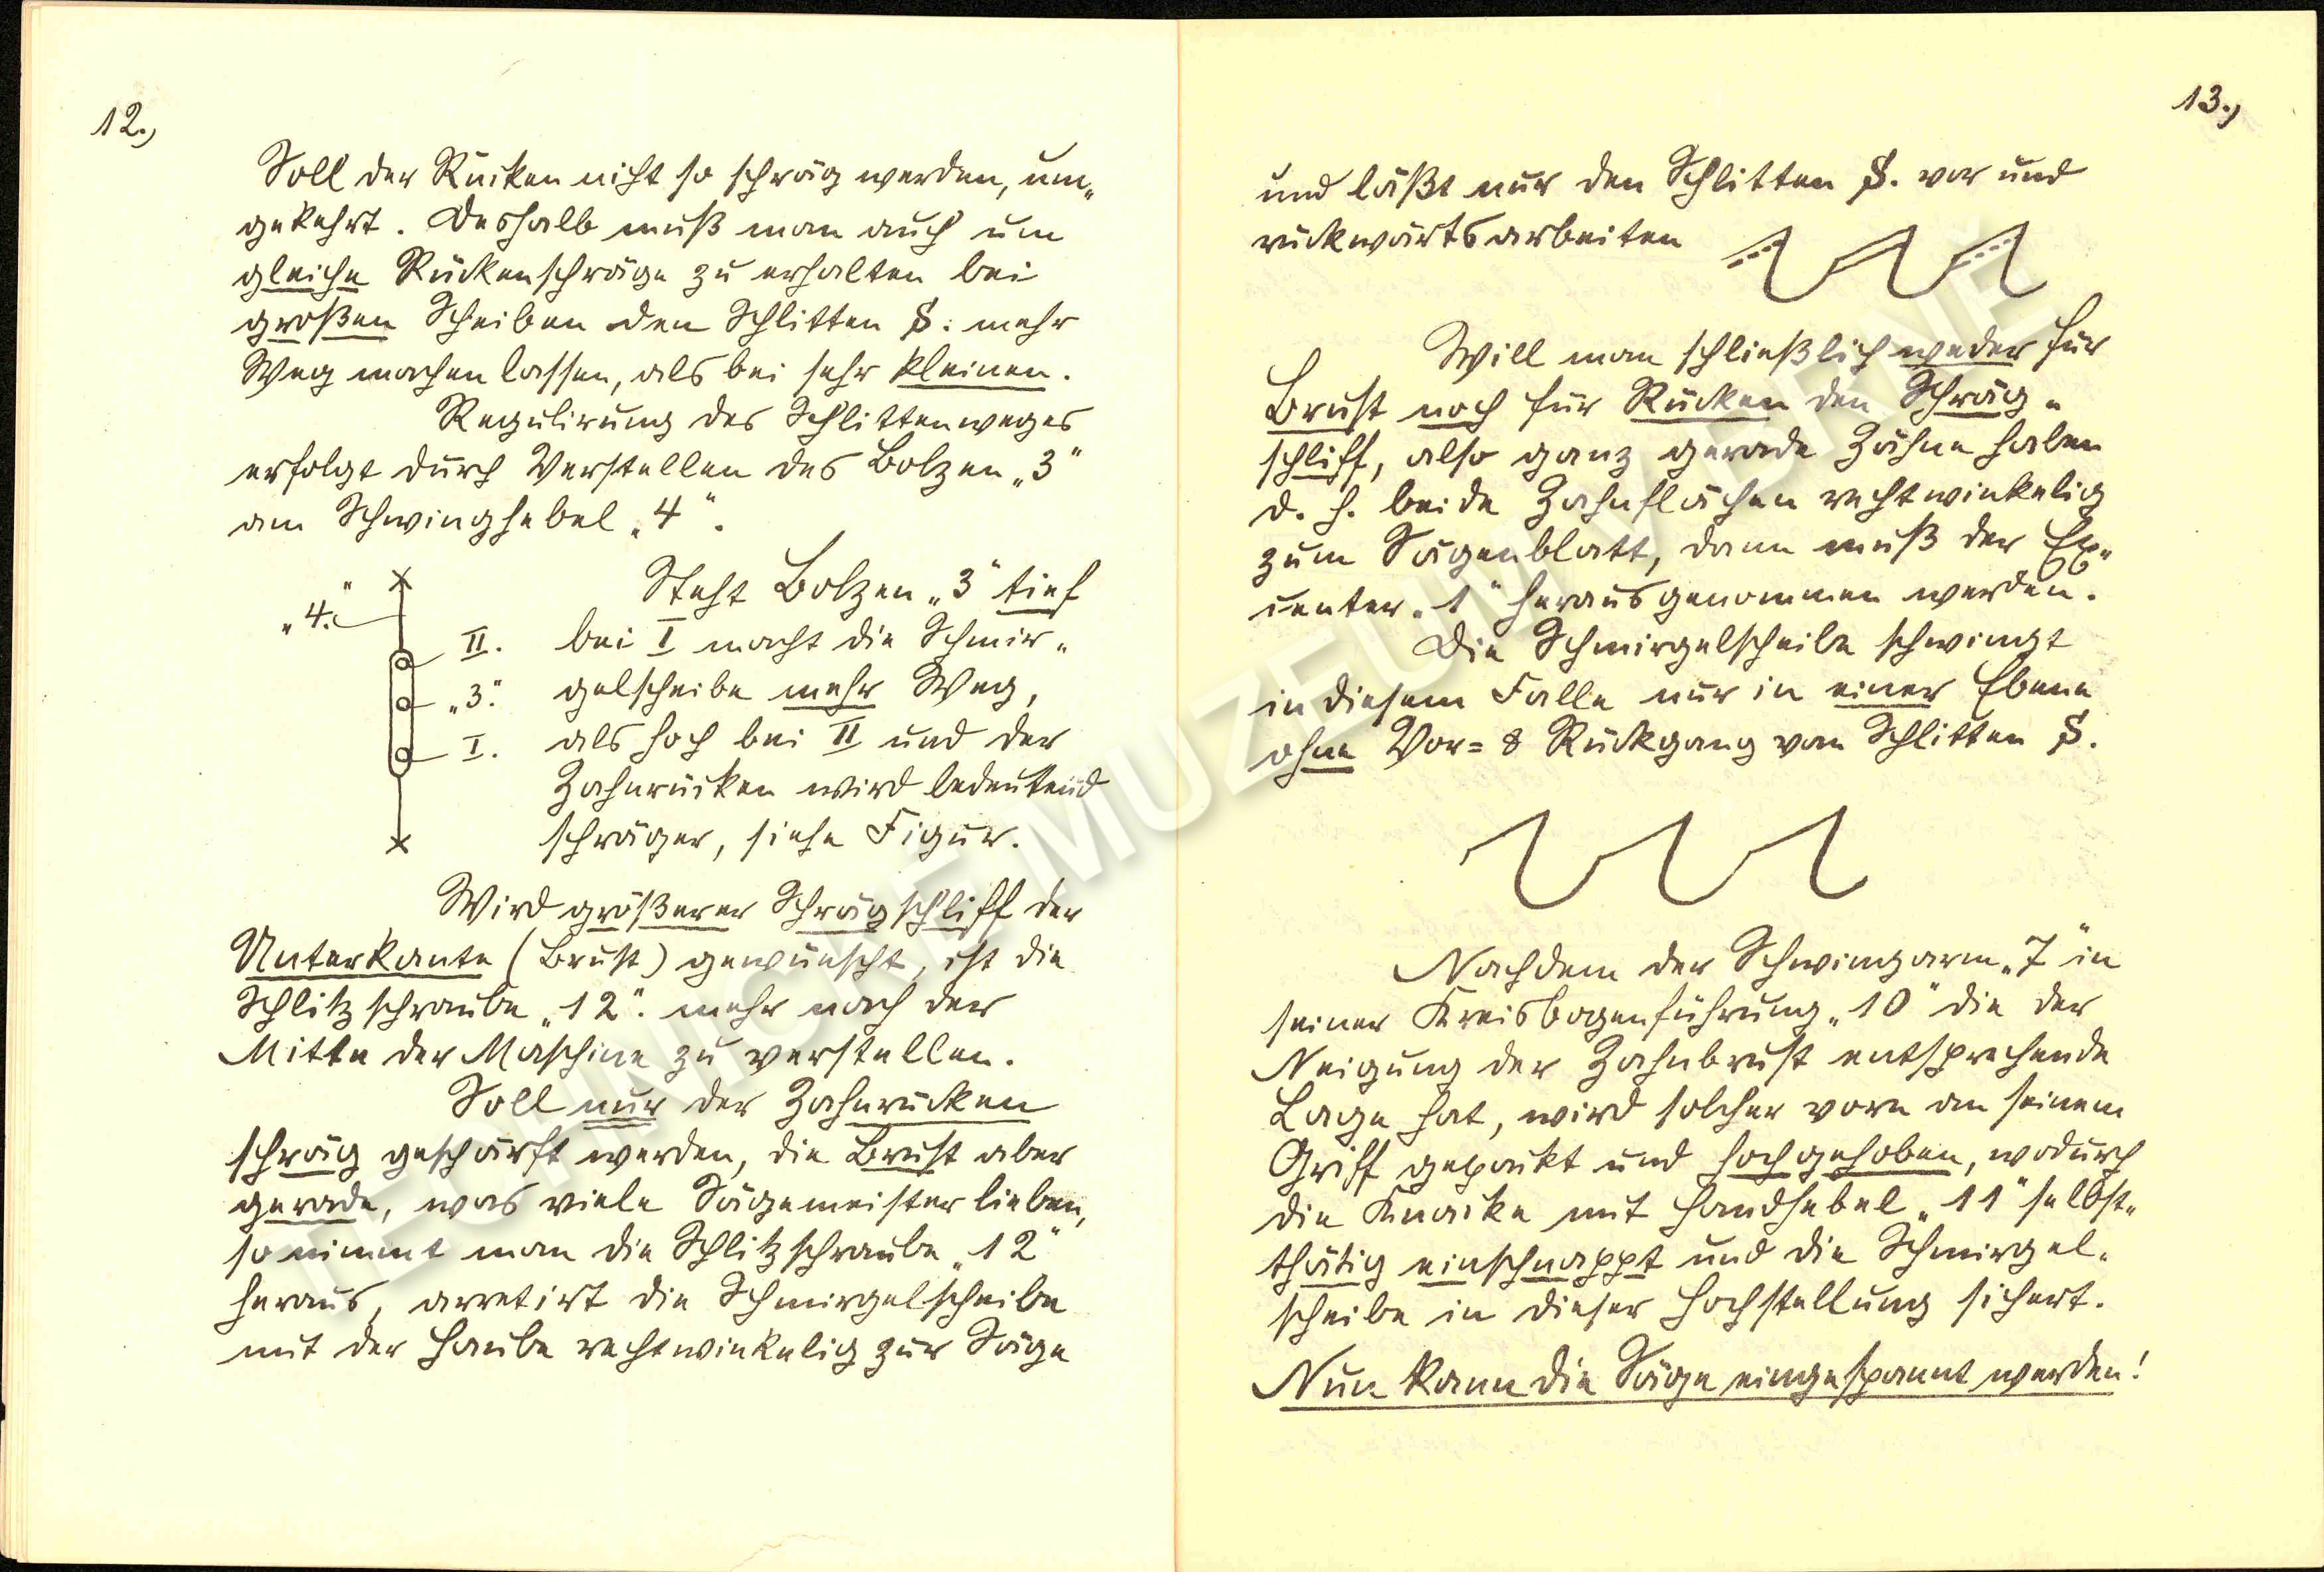 12.,
Soll der Rücken nicht so schräg werden, um„
gekehrt. Deshalb muß man auch um
gleiche Rückenschräge zu erhalten bei
großen Scheiben den Schlitten S. mehr
Weg machen lassen, als bei sehr kleinen.
Regulirung des Schlittenweges
erfolgt durch Verstellen des Bolzen „3“
am Schwinghebel „4“.
Steht Bolzen „3“ tief
„4.“
II. bei I macht die Schmir„
„3.“ gelscheibe mehr Weg,
I. als hoch bei II und der
Zahnrücken wird bedeutend
schräger, siehe Figur.
Wird größerer Schrägschliff der
Unterkante (Brust) gewünscht, ist die
Schlitzschraube „12“. mehr nach der
Mitte der Maschine zu verstellen.
Soll nur der Zahnrücken
schräg geschärft werden, die Brust aber
gerade, was viele Sägemeister lieben,
so nimmt man die Schlitzschraube „12“
heraus, arretirt die Schmirgelscheibe
mit der Haube rechtwinkelig zur Säge
13.,
und läßt nur den Schlitten S. vor und
rückwärts arbeiten
Will man schließlich weder für
Brust noch für Rücken den Schräg„
schliff, also ganz gerade Zähne haben
d. h. beide Zahnflächen rechtwinkelig
zum Sägenblatt, dann muß der Ex„
center „1“ herausgenommen werden.
Die Schmirgelscheibe schwingt
in diesem Falle nur in einer Ebene
ohne Vor= & Rückgang von Schlitten S.
Nachdem der Schwingarm „7“ in
seiner Kreisbogenführung „10“ die der
Neigung der Zahnbrust entsprechende
Lage hat, wird solcher vorn an seinem
Griff gepackt und hochgehoben, wodurch
die Knacke mit Handhebel „11“ selbst„
thätig einschnappt und die Schmirgel„
scheibe in dieser Hochstellung sichert.
Nun kann die Säge eingespannt werden!